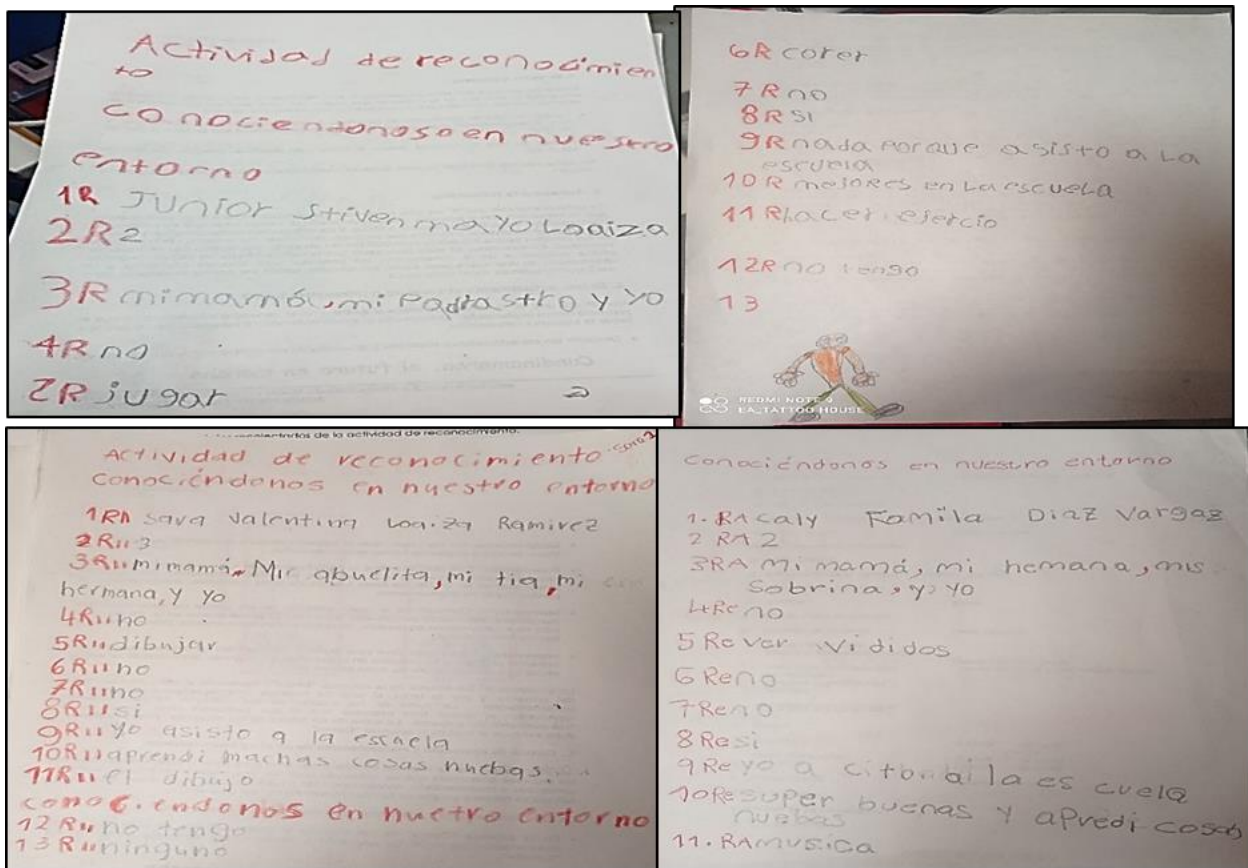 Actividad de reconocimien
to
conociendonoso en nuestro
entorno
1R Junior stiven mayo Loaiza
2R 2
3R mi mamá, mi padrastro y yo
4R no
ZR jugar
6R corer
7R no
8R si
9R nada porque asisto a la
escuela
10R mejores en la escuela
11R hacer ejercio
12R no tengo
13
REDMI NOTE 9
EA_TATTOO HOUSE
de la actividad de reconocimiento.
Actividad de reconocimiento
conociéndonos en nuestro entorno
1R Sara Valentina Loaiza Ramirez
2R 3
3R mi mamá, Mi abuelita, mi tia, mi
hermana, y yo
4R no
5R dibujar
6R no
7R no
8R si
9R yo asisto a la escuela
10R aprendi muchas cosas nuebas
11R el dibujo
conociendonos en nuetro entorno
12R no tengo
13R ninguno
conociéndonos en nuestro entorno
1. RA caly Kamila Diaz Vargaz
2 RA 2
3RA Mi mamá, mi hemana, mis
sobrina, y yo
4Re no
5 Re ver vididos
6 Re no
7Re no
8 Re si
9 Re yo a cito a la es cuela
10Re super buenas y apredi cosas
nuebas
11. RA musica